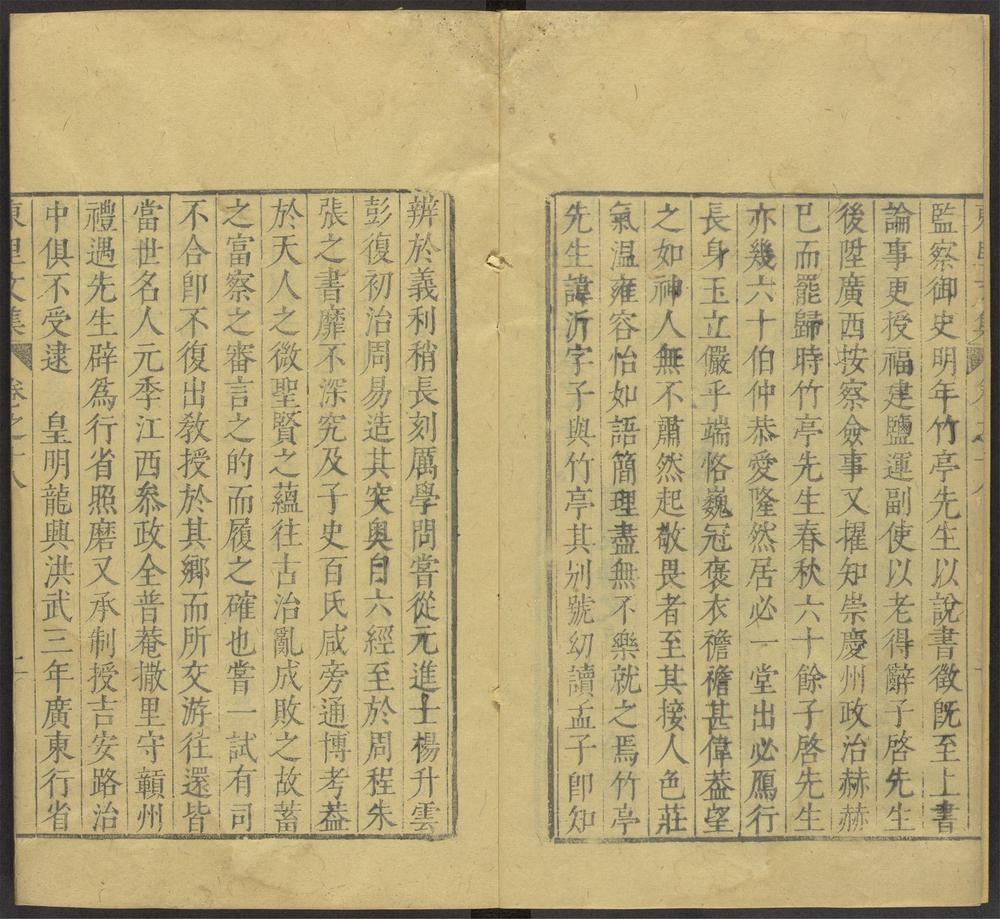 監察御史明年竹亭先生以說書徵既至上書
論事更授福建鹽運副使以老得辭子啓先生
後陞廣西按察僉事又擢知崇慶州政治赫赫
已而罷歸時竹亭先生春秋六十餘子啓先生
亦幾六十伯仲恭愛隆然居必一堂出必鴈行
長身玉立儼乎端恪巍冠褒衣襜襜甚偉葢望
之如神人無不肅然起敬畏者至其接人色莊
氣温雍容怡如語簡理盡無不樂就之焉竹亭
先生諱沂字子與竹亭其别號幼讀孟子卽知
辨於義利稍長刻厲學問嘗從元進士楊升雲
彭復初治周易造其突奥自六經至於周程朱
張之書靡不深究及子史百氏咸旁通博考葢
於天人之微聖賢之蘊往古治亂成敗之故蓄
之富察之審言之的而履之確也嘗一試有司
不合卽不復出敎授於其鄉而所交游往還皆
當世名人元季江西叅政全普菴撒里守贑州
禮遇先生辟爲行省照磨又承制授吉安路治
中俱不受逮　皇明龍興洪武三年廣東行省
東里文集 卷之十八 二